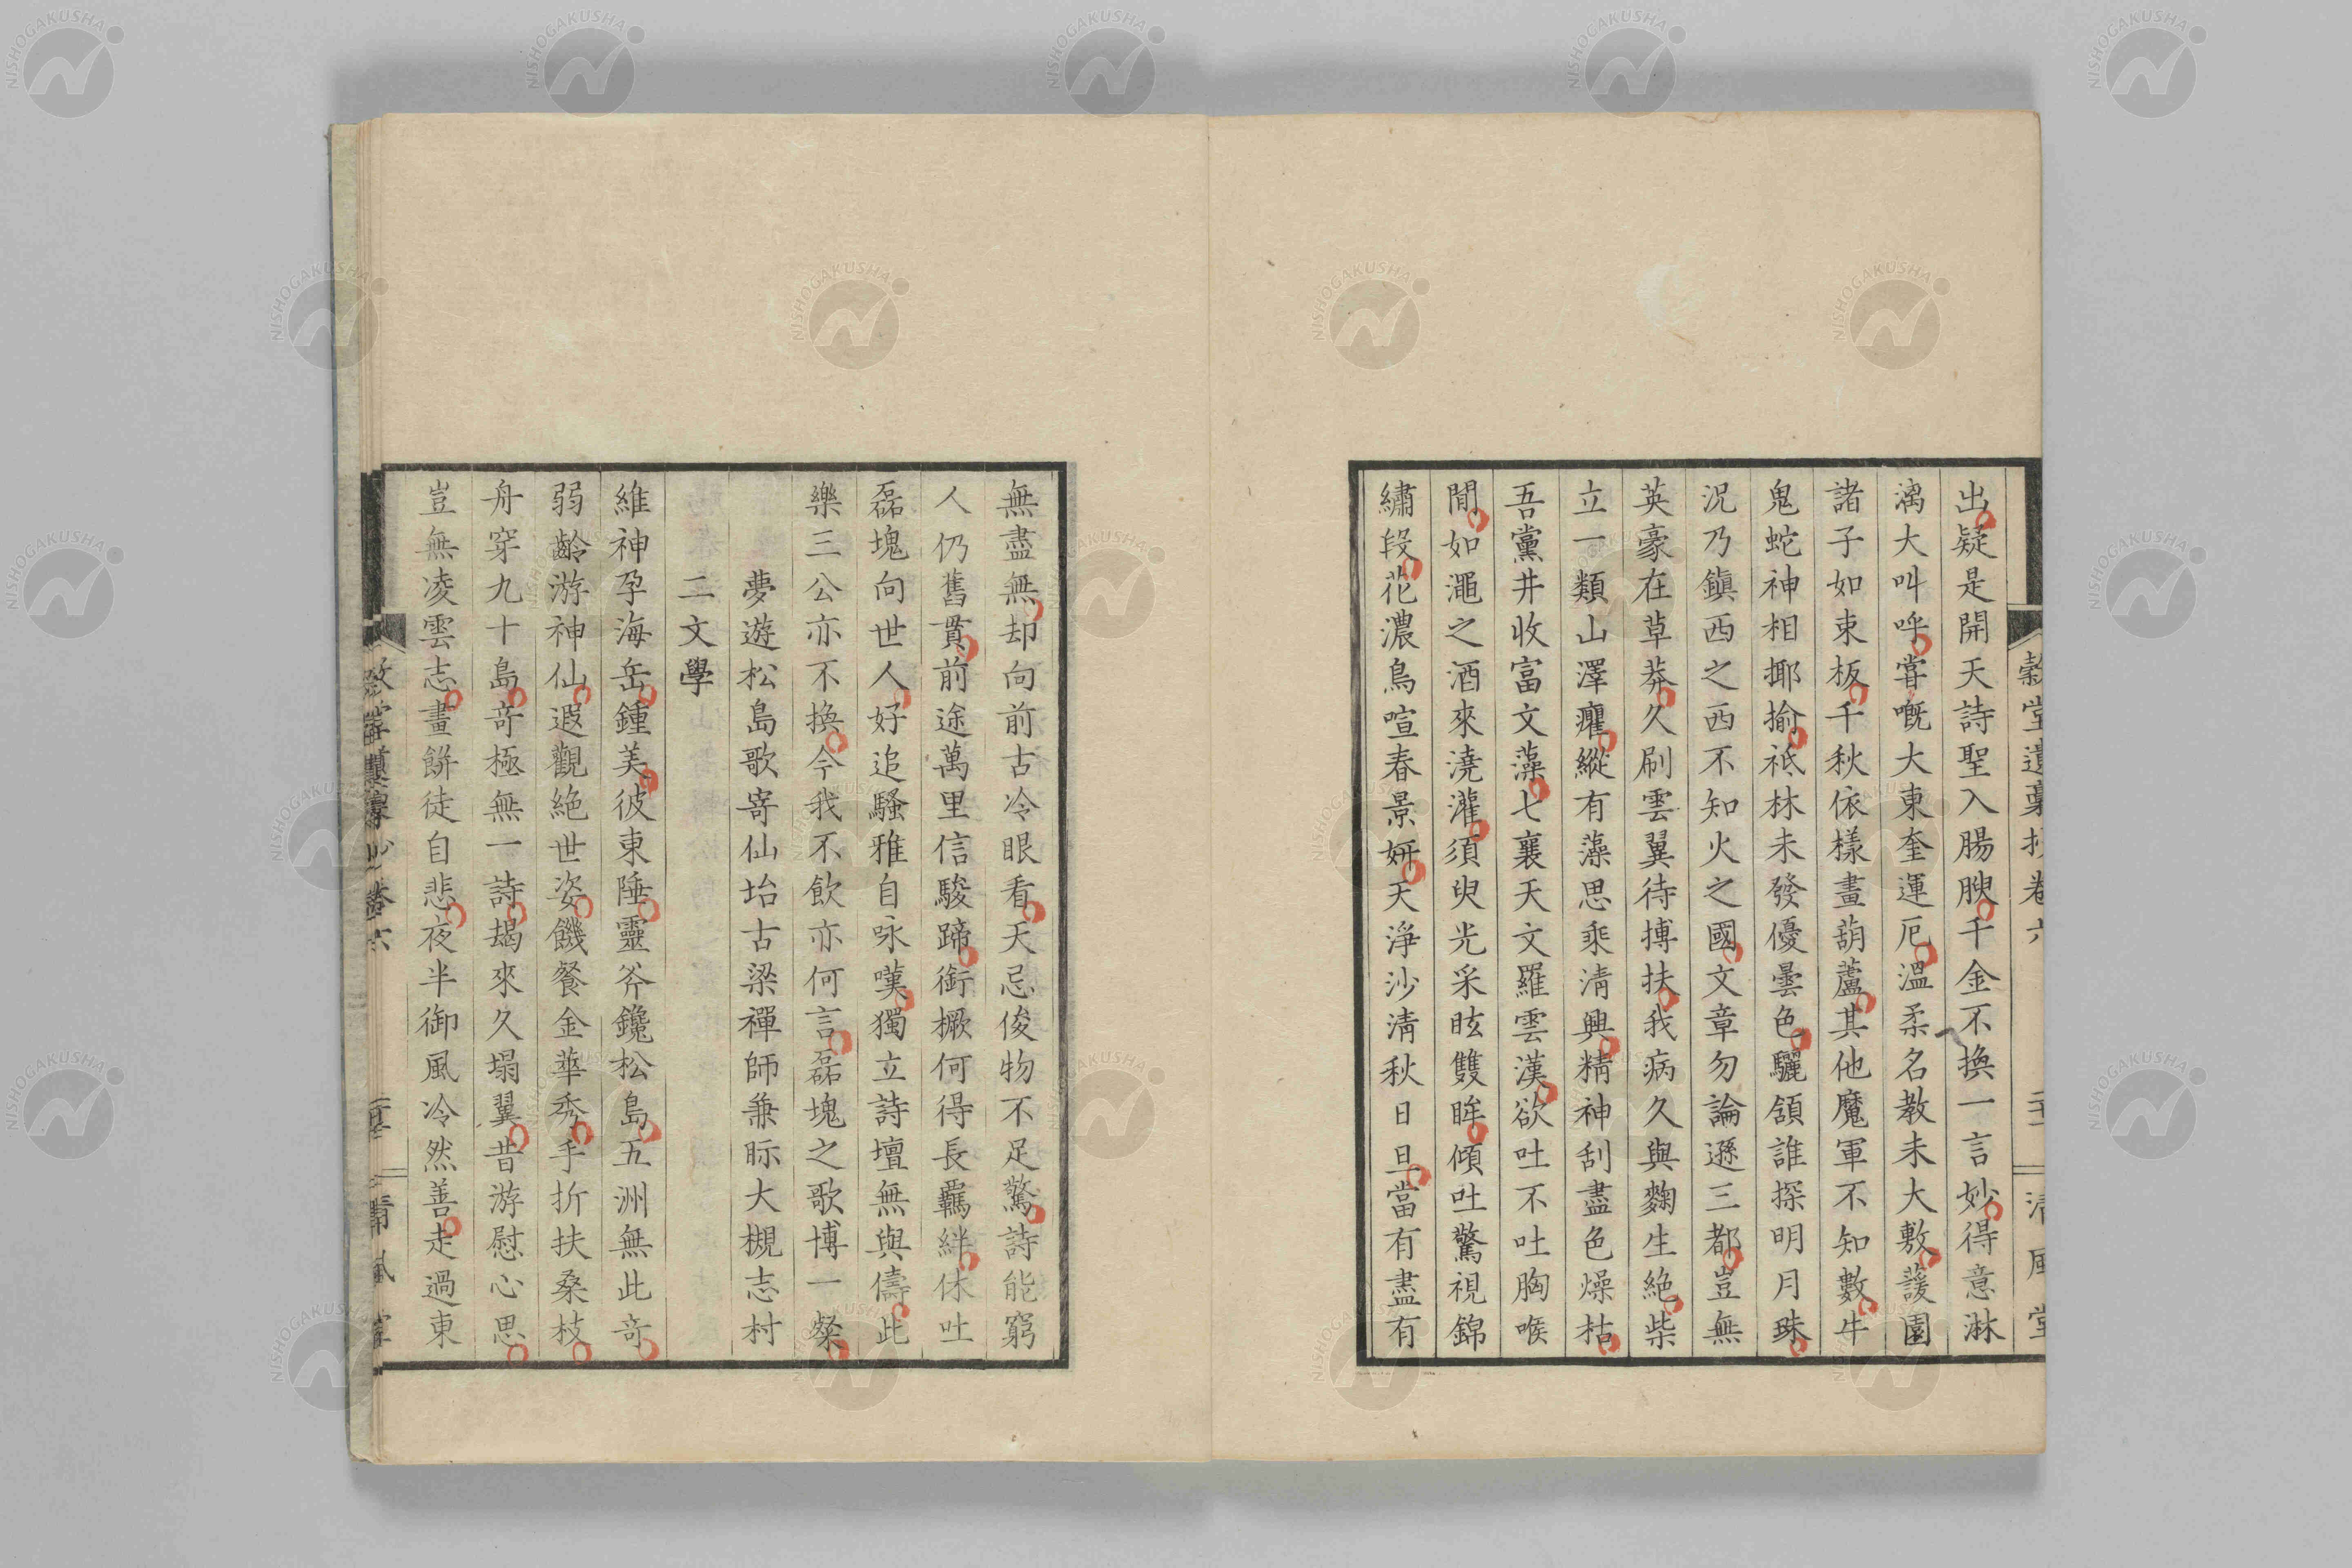 出疑是開天詩聖入腸腴千金不換一言妙得意淋
漓大叫呼嘗嘅大東奎運厄溫柔名教未大敷蘐園
諸子如束板千秋依樣畫葫蘆其他魔軍不知數牛
鬼蛇神相揶揄祗林未發優曇色驪頷誰探明月珠
況乃鎭西之西不知火之國文章勿論遜三都豈無
英豪在草莽久刷雲翼待搏扶我病久與麴生絶柴
立一類山澤癯縱有藻思乘淸興精神刮盡色燥枯
吾黨井收富文藻七襄天文羅雲漢欲吐不吐胸喉
閒如澠之酒來澆灌須臾光采眩雙眸傾吐驚視錦
繡段花濃鳥喧春景妍天淨沙淸秋日旦當有盡有
穀堂遺稾抄卷六
淸風堂
無盡無却向前古冷眼看天忌俊物不足驚詩能窮
人仍舊貫前途萬里信駿蹄銜橛何得長羈絆休吐
磊塊向世人好追騷雅自咏嘆獨立詩壇無與儔此
樂三公亦不換今我不飮亦何言磊塊之歌博一粲
夢遊松島歌寄仙坮古梁禪師兼眎大槻志村
二文學
維神孕海岳鍾美彼東陲靈斧鑱松島五洲無此奇
弱齡游神仙遐觀絶世姿饑餐金華秀手折扶桑枝
舟穿九十島奇極無一詩朅來久塌翼昔游慰心思
豈無凌雲志畫餠徒自悲夜半御風冷然善走過東